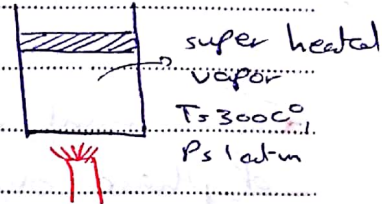 super heated
vapor
T=300C°,
P=1atm